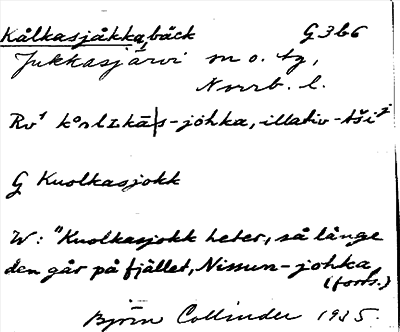 Kålkasjåkka, bäck G3b6
Jukkasjärvi sn o. tg,
Norrb. l.
Rv¹ johka, illativ -tši
G Kuolkasjokk
W: "Kuolkasjokk heter, så länge
den går på fjället, Nissun-johka
(forts.)
Björn Collinder 1925.